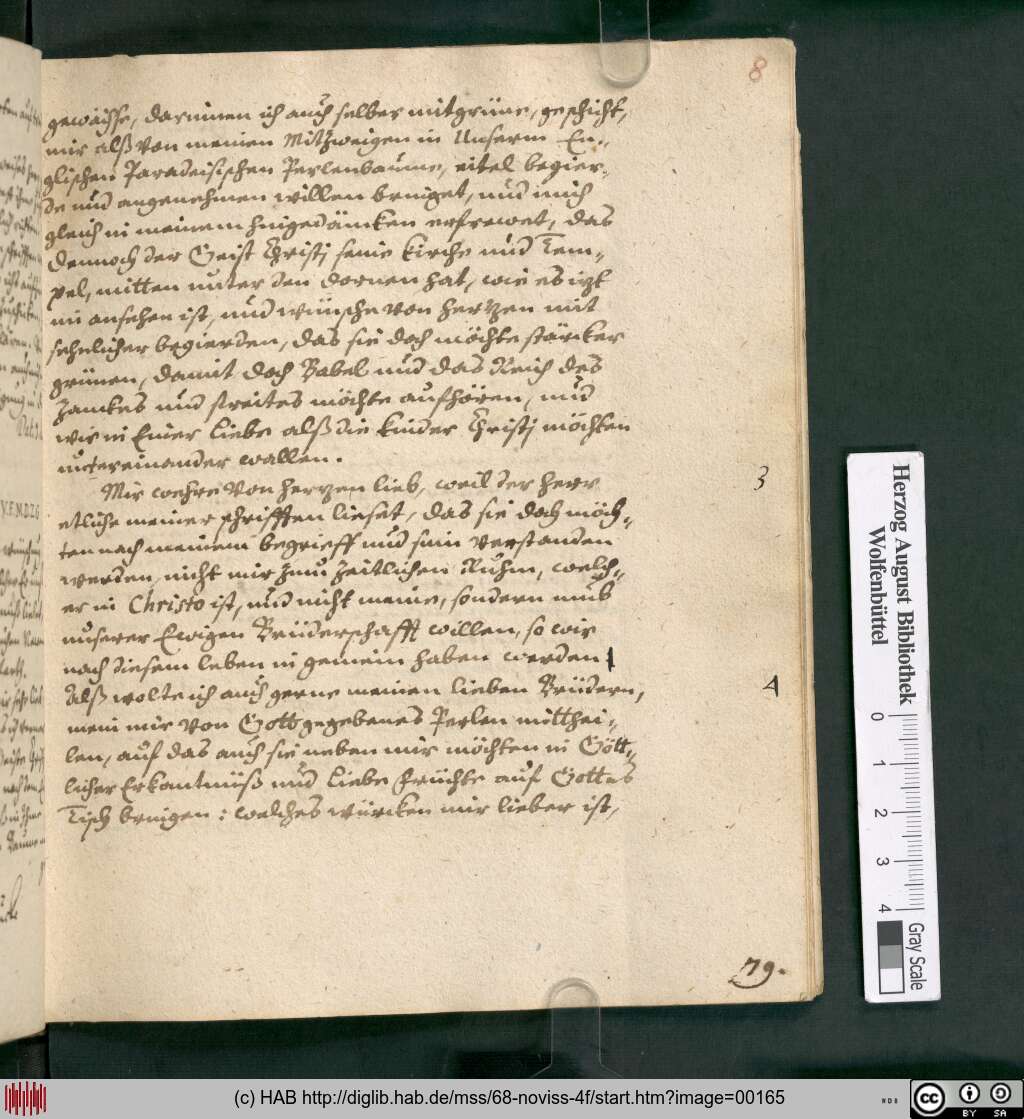 8
gewächse, darinnen ich auch selber mitgrüne, geschicht,
mir alß von meinen Mitzweigen in Unserm En-
glischen Paradeisischen Perlenbaume, eitel begier-
de und angenehmen willen bringet, und mich
gleich in meinem hingedäncken erfrewet, das
dennoch der Geist Christj seine Kirche und Tem-
pel, mitten unter den dornen hat, wie es itzt
im ansehen ist, und wünsche von hertzen mit
sehnlicher begierden, das sie doch möchte stärcker
grünen, damit doch Babel und das Reich des
Zanckes und streites möchte aufhören, und
wir in Einer Liebe alß die kinder Christj möchten
untereinander wallen.
Mir wehre von hertzen lieb, weil der herr
etliche meiner schrifften lieset, das sie doch möch-
ten nach meinem begrieff und sinn verstanden
werden, nicht mir zum Zeitlichen Ruhm, welch-
er in Christo ist, und nicht meine, sondern umb
unserer Ewigen Brüderschafft willen, so wir
nach diesem leben in gemein haben werden
Alß wolte ich auch gerne meinen lieben Brüdern,
mein mir von Gott gegebenes Perlen mitthei-
len, auf das auch sie neben mir möchten in Gött-
licher Erkantnüß und Liebe früchte auf Gottes
Tisch bringen: welches würcken mir lieber ist,
3
4
79.
Herzog August Bibliothek
Wolfenbüttel
0 1 2 3 4
Gray Scale
(c) HAB http://diglib.hab.de/mss/68-noviss-4f/start.htm?image=00165
WDB
cc BY SA